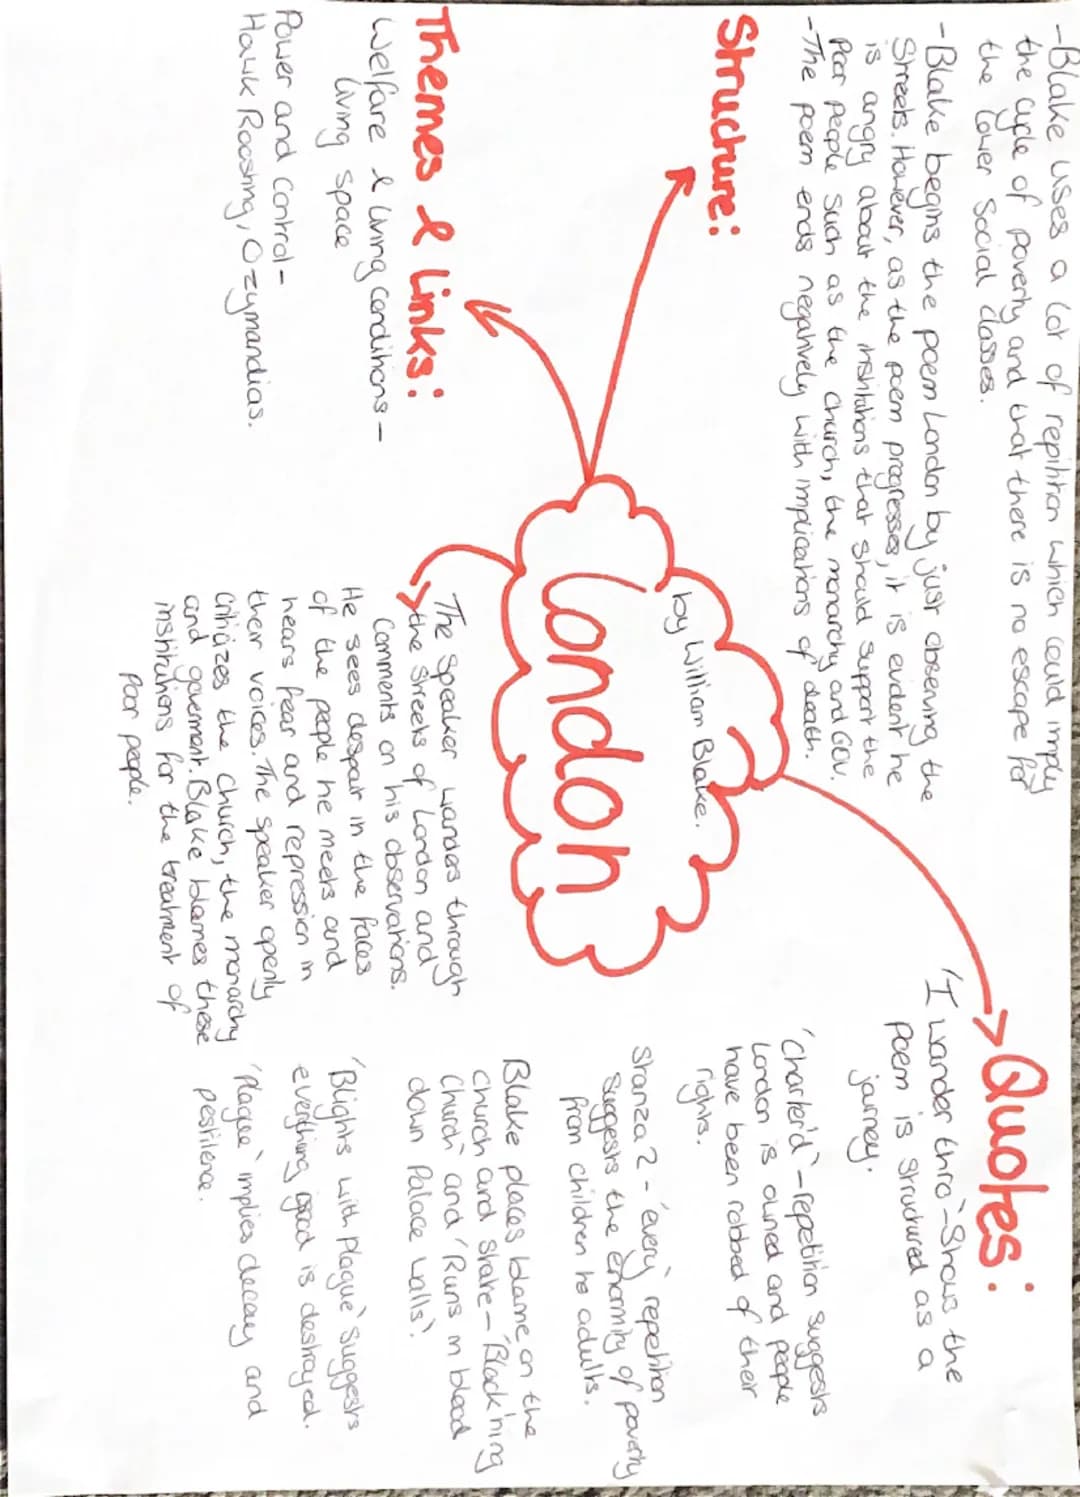 -Blake uses a lot of repihtion which could imply
the cycle of poverty and that there is no escape for
the lower social classes.
-Blake begins the poem London by just observing the
Streets. However, as the poem progresses, it is evident he
is angry about the institutions that should support the
Poor people such as the church, the monarchy and GOV.
-The poem ends negatively with implications of death.
Structure:
Themes & Links:
Welfare & living conditions -
living space
Power and control -
Hawk Roosting, Ozymandias.
London
by William Blake.
The speaker wanders through
the streets of London and
comments on his observations.
He sees despair in the faces
of the people he meets and
hears fear and repression in
their voices. The speaker openly
critiazes the church, the monarchy
and goverment. Blake blames these
institutions for the treatment of
poor people.
Quotes:
'I wander thro' - Shows the
poem is structured as a
journey.
'Charter'd' - repetition suggests
London is owned and people
have been robbed of their
rights.
Stanza 2 - 'every' repetition
suggests the enormity of poverty
from children to adults.
Blake places blame on the
church and state - 'Black'ning
Church' and 'Runs in blood
down Palace walls'.
'Blights with plague' suggests
everything good is destroyed.
'Plague' implies decay and
pestilence.